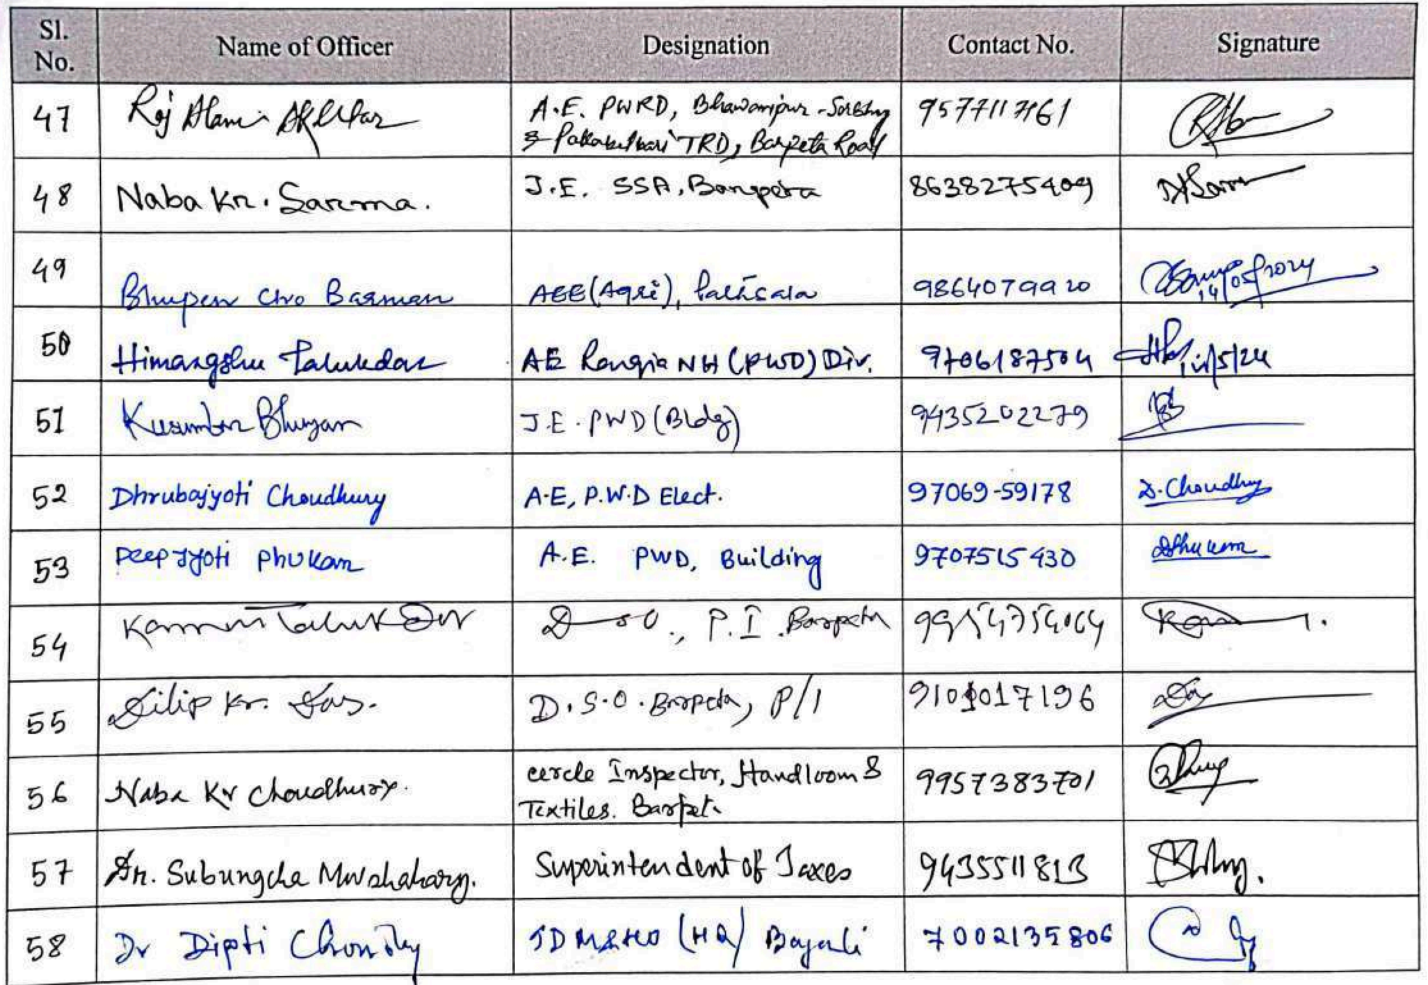 Sl. No. Name of Officer Designation Contact No. Signature
47 A.E. PWRD, Bhawanipur - Sorbhog 9577117161
TRD, Barpeta Road
48 Naba Kr. Sarma. J.E. SSA, Barpeta 8638275409
49 Bhupen Barman AEE (Agri), Pathsala 9864079920
14/05/2024
50 Himangshu Talukdar AE Rangia NH (PWD) Div. 9706187504
14/5/24
51 Bhuyan J.E. PWD (Bldg) 9435202279
52 Dhrubajyoti Choudhury A.E, P.W.D Elect. 97069-59178 D. Choudhury
53 Deepjyoti Phukan A.E. PWD, Building 9707515430 DPhukan
54 Talukdar P.I. Barpeta
55 Dilip Kr. Das. D.S.O. Barpeta, P/I 9101017196 Das
56 Naba Kr Choudhury. cercle Inspector, Handloom & 9957383701
Textiles. Barpeta
57 Dr. Subungcha Mwshahary. Superintendent of Taxes 9435511813
58 Dr Dipti (HQ) Bajali 7002135806